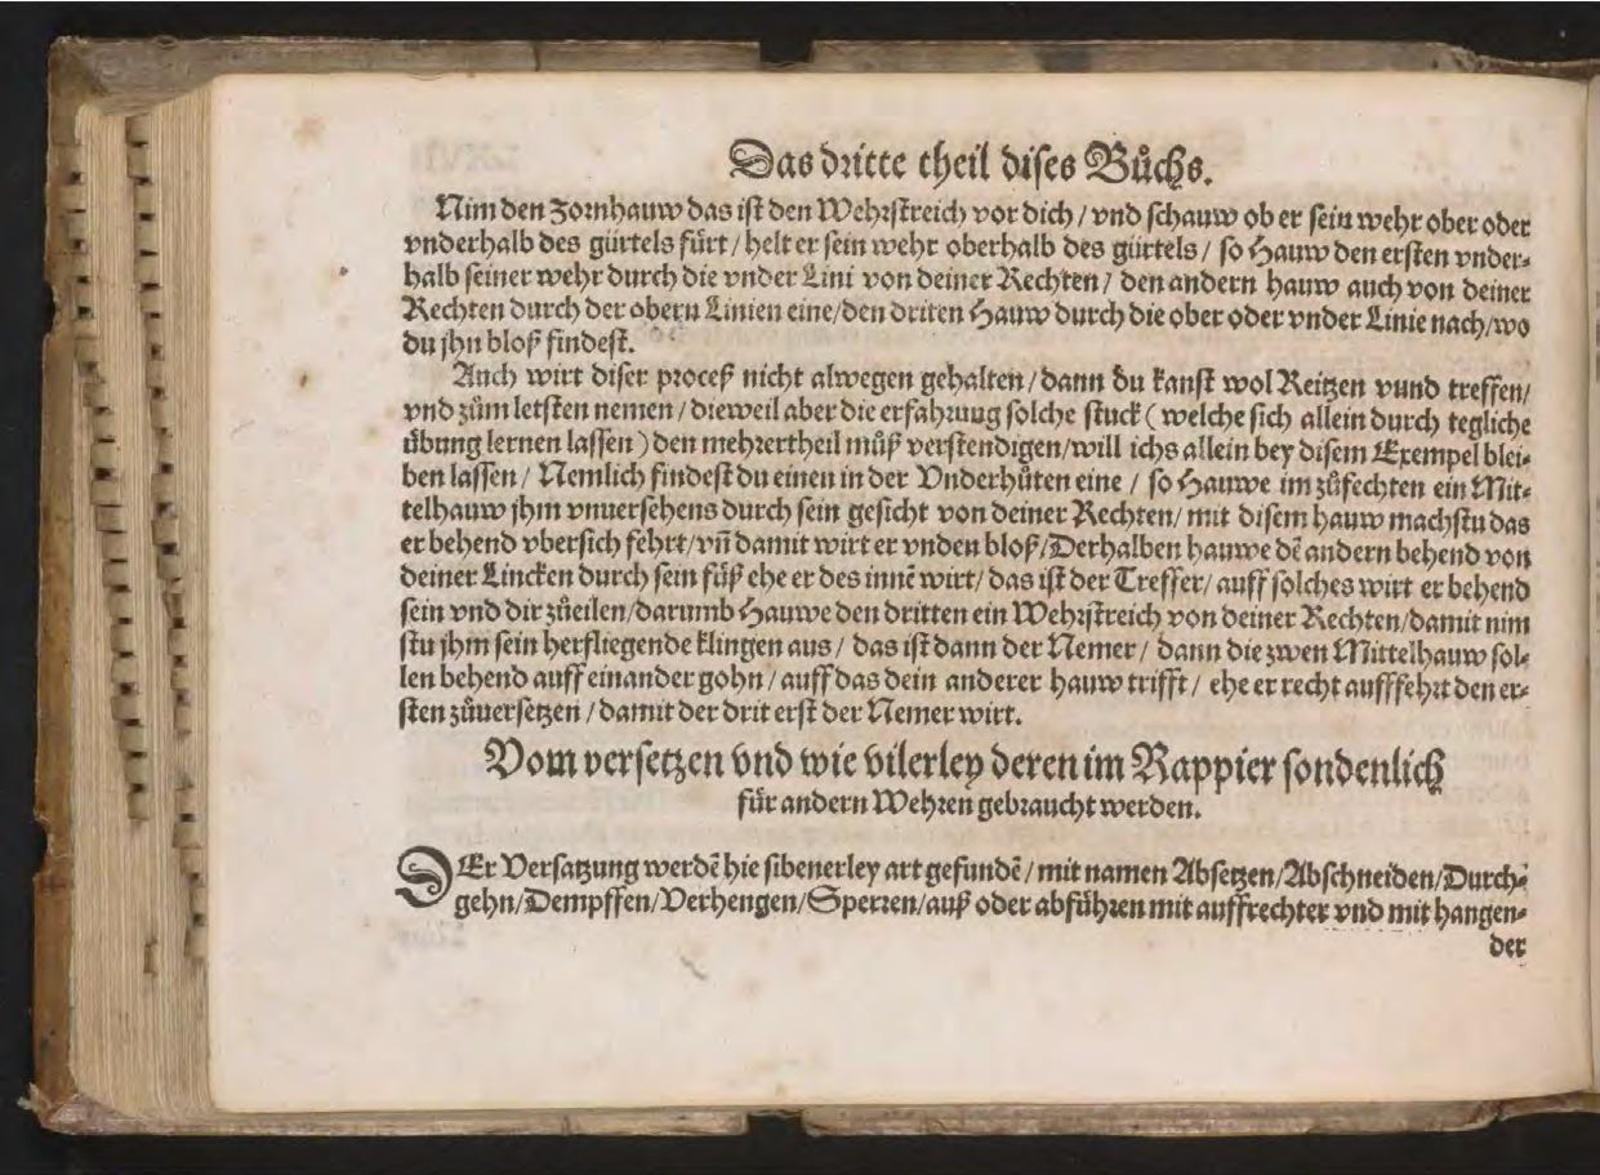 Das dritte theil dises Bůchs.
Nim den Zornhauw das ist den Wehrstreich vor dich / vnd schauw ob er sein wehr ober oder
vnderhalb des gürtels fürt / helt er sein wehr oberhalb des gürtels / so Hauw den ersten vnder-
halb seiner wehr durch die vnder Lini von deiner Rechten / den andern hauw auch von deiner
Rechten durch der obern Linien eine/den driten Hauw durch die ober oder vnder Linie nach/wo
du jhn bloß findest.
Auch wirt diser proceß nicht alwegen gehalten / dann du kanst wol Reitzen vund treffen/
vnd zům letsten nemen / dieweil aber die erfahrung solche stuck ( welche sich allein durch tegliche
übung lernen lassen ) den mehrertheil můß verstendigen/will ichs allein bey disem Exempel blei-
ben lassen / Nemlich findest du einen in der Vnderhůten eine / so Hauwe im zůfechten ein Mit-
telhauw jhm vnuersehens durch sein gesicht von deiner Rechten/ mit disem hauw machstu das
er behend vbersich fehrt/vñ damit wirt er vnden bloß/Derhalben hauwe dē andern behend von
deiner Lincken durch sein fůß ehe er des innē wirt/ das ist der Treffer/ auff solches wirt er behend
sein vnd dir zůeilen/darumb Hauwe den dritten ein Wehrstreich von deiner Rechten/damit nim
stu jhm sein herfliegende klingen aus / das ist dann der Nemer / dann die zwen Mittelhauw sol-
len behend auff einander gohn / auff das dein anderer hauw trifft / ehe er recht aufffehrt den er-
sten zůuersetzen / damit der drit erst der Nemer wirt.
Vom versetzen vnd wie vilerley deren im Rappier sondenlich
für andern Wehren gebraucht werden.
DEr Versatzung werdē hie sibenerley art gefundē / mit namen Absetzen/Abschneiden/Durch-
gehn/Dempffen/Verhengen/Sperren/auß oder abführen mit auffrechter vnd mit hangen-
der